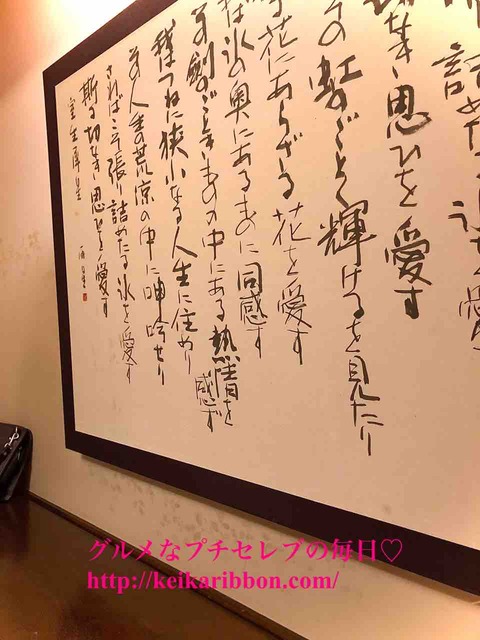 詰めたる氷を愛
切なき思ひを愛す
の虹のごとく輝けるを見たり
る花にあらざる花を愛す
は氷の奥にあるものに同感す
その剣のごときものの中にある熱情を感ず
我はつねに狭小なる人生に住めり
その人生の荒涼の中に呻吟せり
さればこそ張り詰めたる氷を愛す
斯る切なき思ひを愛す
室生犀星
グルメなプチセレブの毎日♡
http://keikaribbon.com/